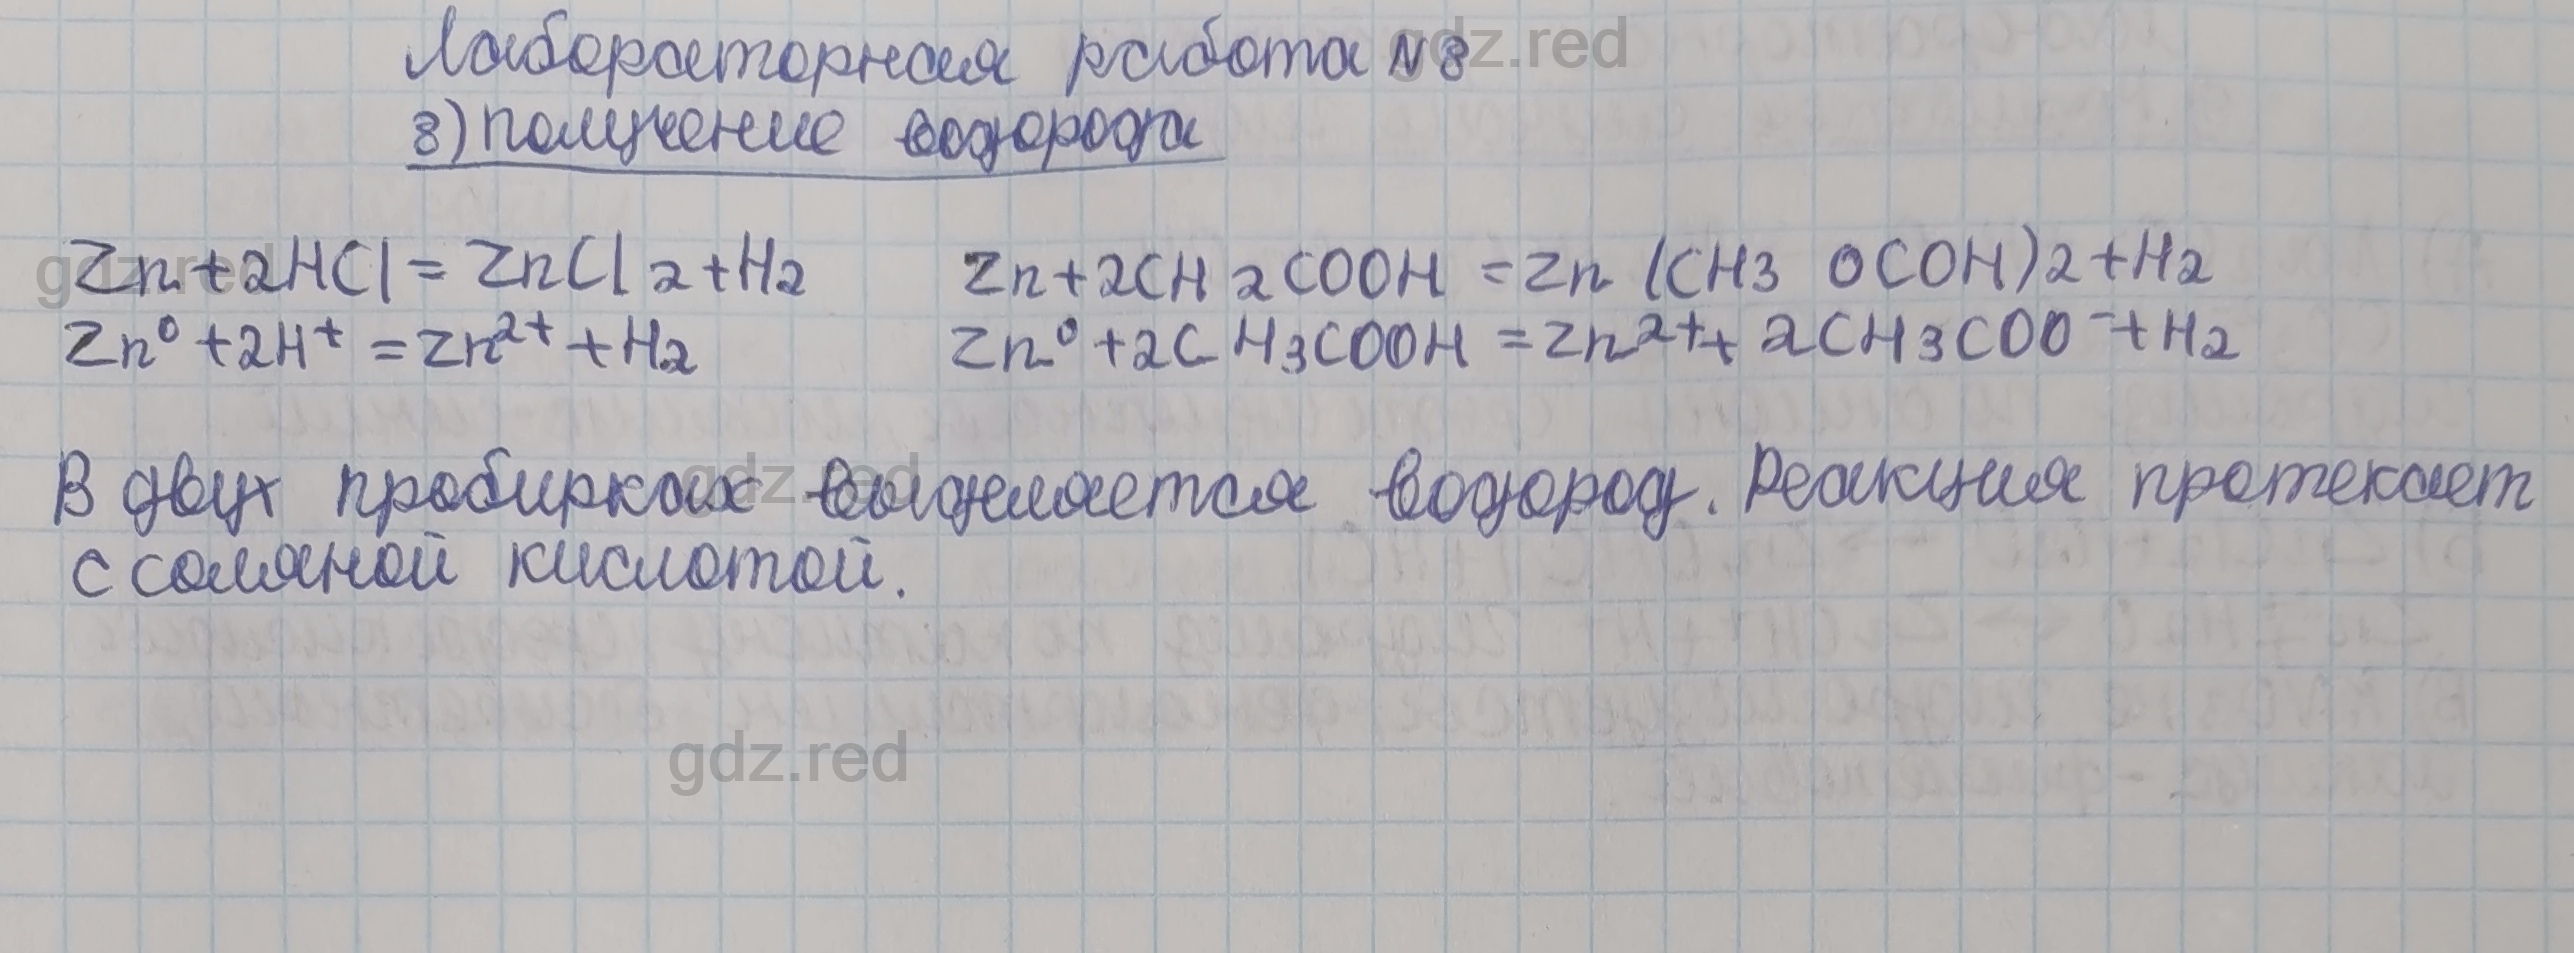 Лабораторная работа №8
8) Получение водорода
Zn+2HCl=ZnCl2+H2
Zn+2CH2COOH=Zn(CH3 OCOH)2+H2
Zn⁰+2H⁺=Zn²⁺+H2
Zn⁰+2CH3COOH=Zn²⁺+2CH3COO⁻+H2
В двух пробирках выделяется водород. Реакция протекает
с соляной кислотой.
gdz.red
gdz.red
gdz.red
gdz.red